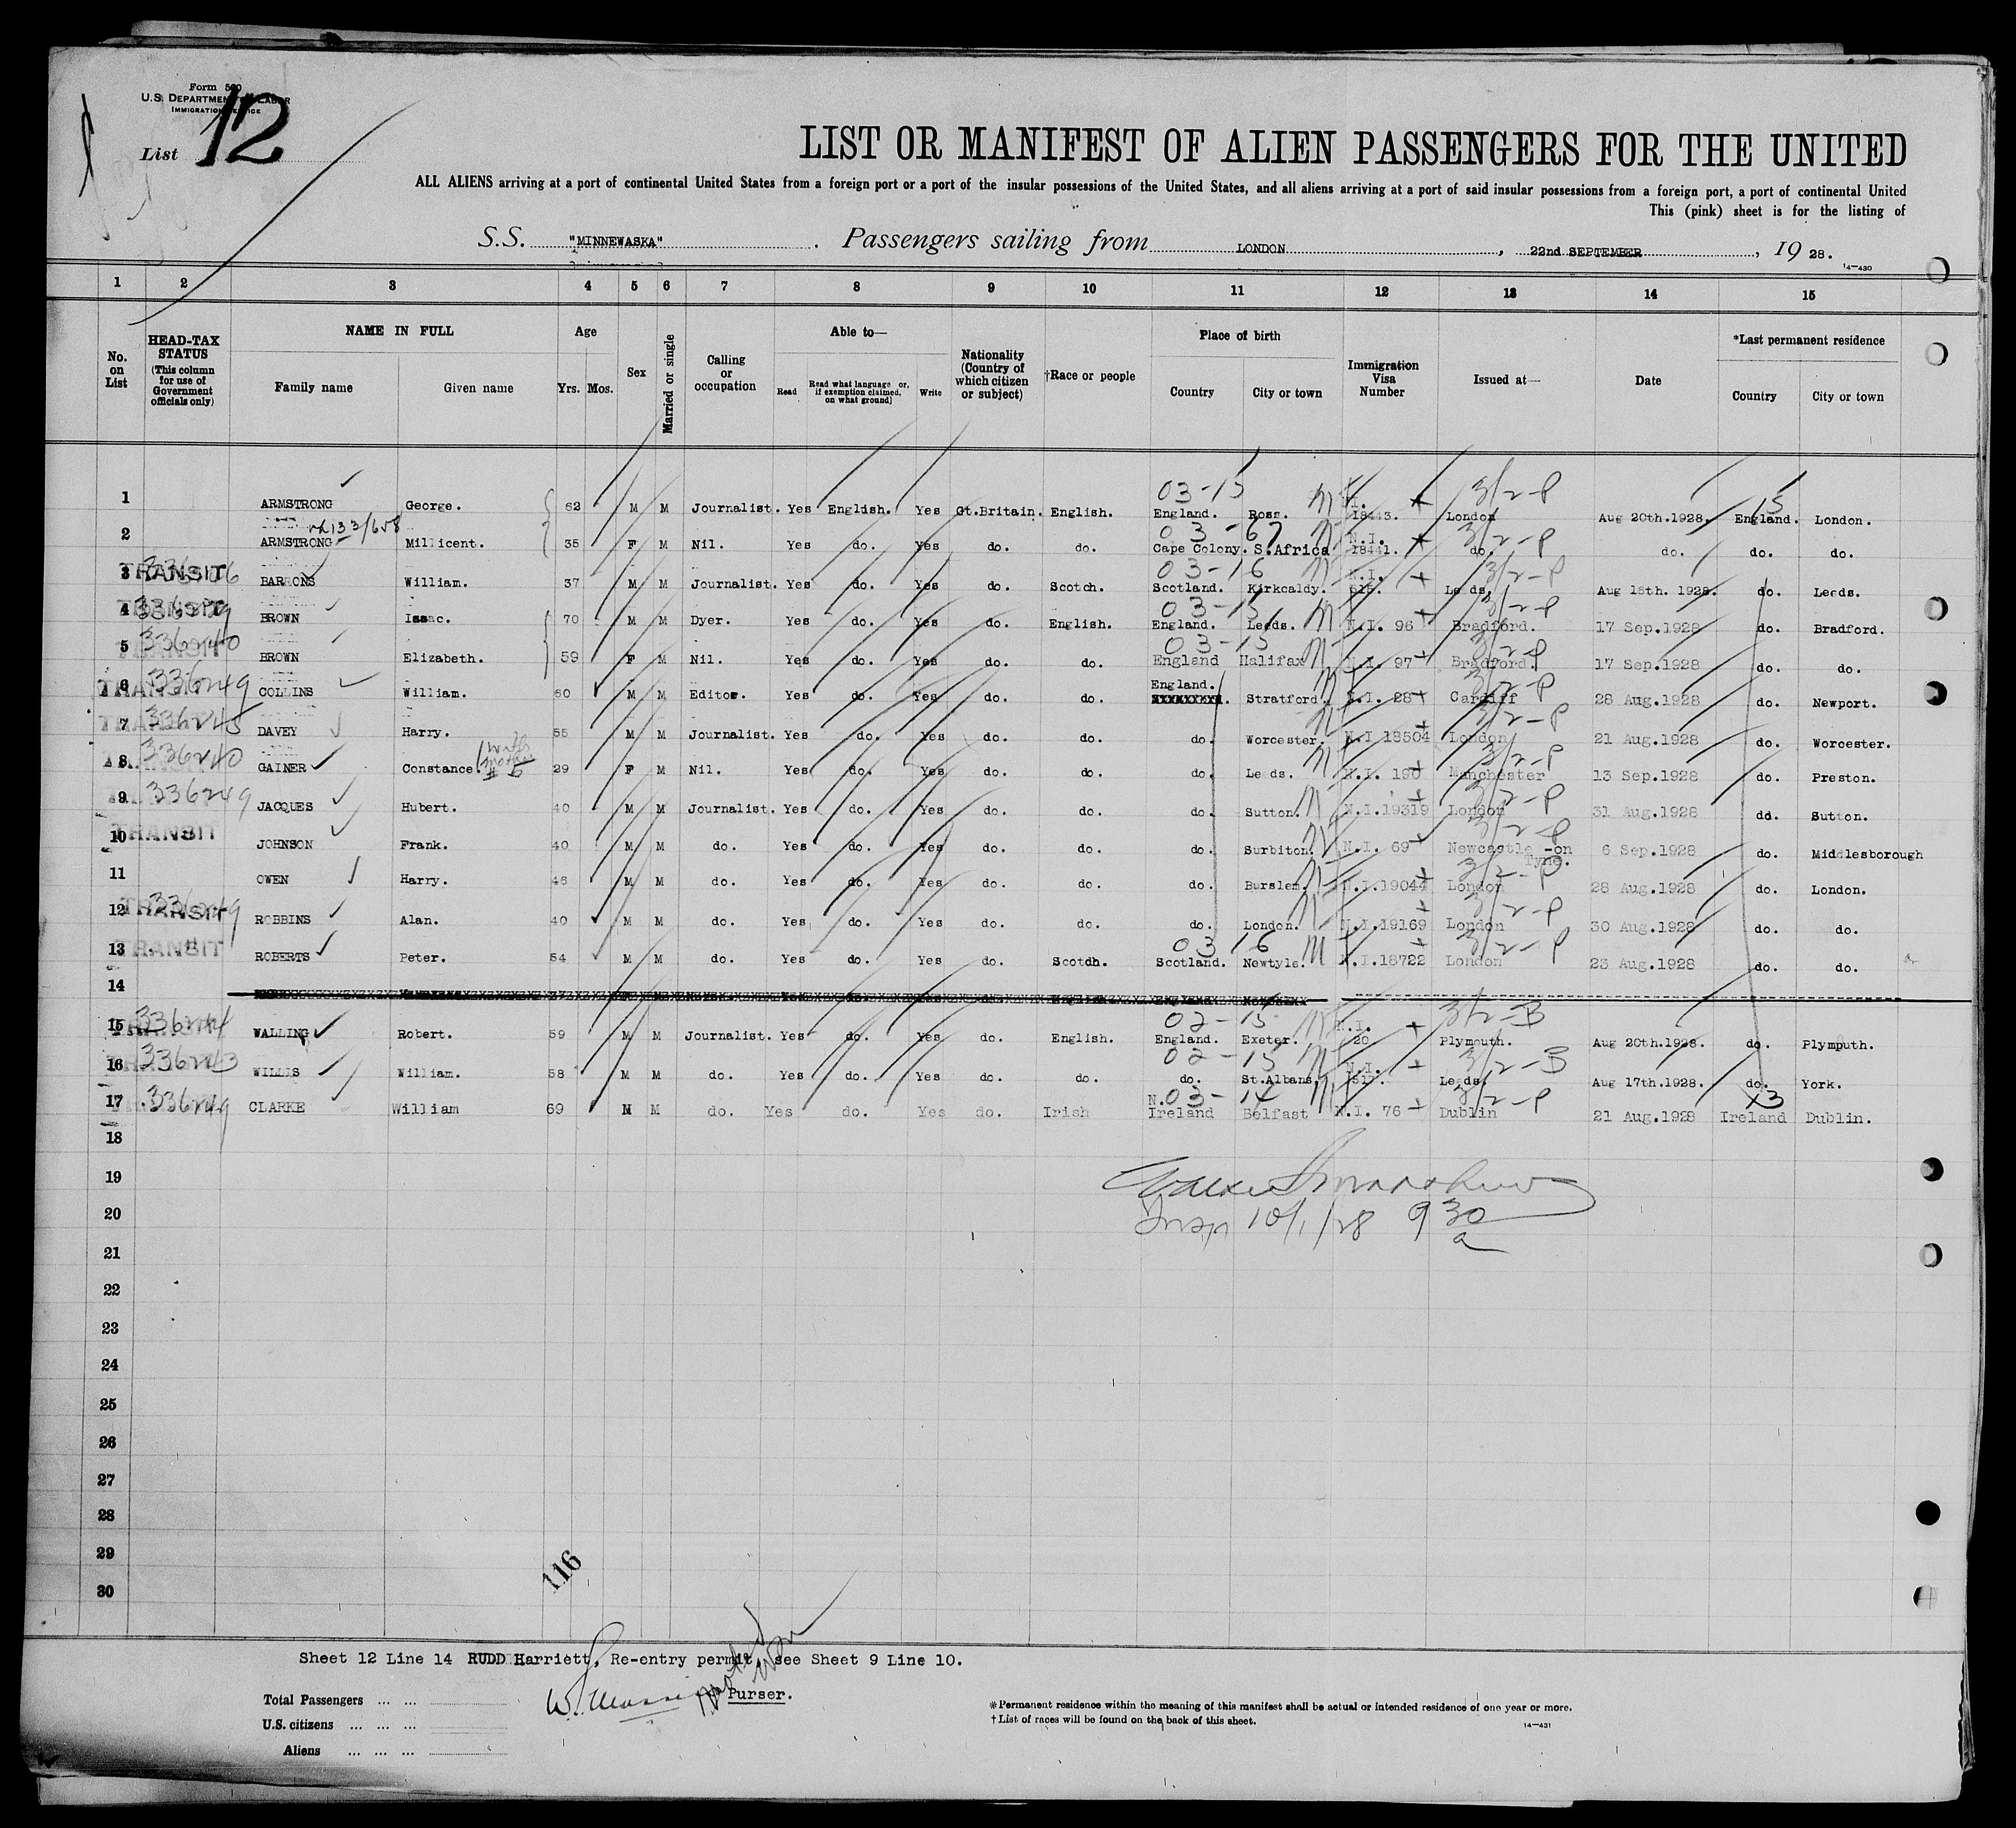 Form 500
U.S. DEPARTMENT OF LABOR
IMMIGRATION SERVICE
List 12
LIST OR MANIFEST OF ALIEN PASSENGERS FOR THE UNITED
ALL ALIENS arriving at a port of continental United States from a foreign port or a port of the insular possessions of the United States, and all aliens arriving at a port of said insular possessions from a foreign port, a port of continental United
This (pink) sheet is for the listing of
S.S. "MINNEWASKA". Passengers sailing from LONDON, 22nd SEPTEMBER, 19 28.
14—430
1 2 3 4 5 6 7 8 9 10 11 12 13 14 15
No. on List
HEAD-TAX STATUS (This column for use of Government officials only)
NAME IN FULL
Family name Given name
Age
Yrs. Mos.
Sex
Married or single
Calling or occupation
Able to—
Read Read what language or, if exemption claimed, on what ground) Write
Nationality (Country of which citizen or subject)
†Race or people
Place of birth
Country City or town
Immigration Visa Number
Issued at—
Date
*Last permanent residence
Country City or town
03-15 3/2-P 15
1 ARMSTRONG George. 62 M M Journalist. Yes English. Yes Gt.Britain. English. England. Ross. N.I. 18443. London Aug 20th.1928. England. London.
03-67 3/2-P
2 ARMSTRONG Millicent. 35 F M Nil. Yes do. Yes do. do. Cape Colony. S.Africa N.I. 18441. do. do. do. do.
03-16 3/2-P
3 TRANSIT BARRONS William. 37 M M Journalist. Yes do. Yes do. Scotch. Scotland. Kirkcaldy. N.I. 515. Leeds. Aug 18th. 1928. do. Leeds.
03-15 3/2-P
4 TRANSIT BROWN Isaac. 70 M M Dyer. Yes do. Yes do. English. England. Leeds. N.I. 96 Bradford. 17 Sep.1928 do. Bradford.
03-15 3/2-P
5 336240 BROWN Elizabeth. 59 F M Nil. Yes do. Yes do. do. England Halifax N.I. 97 Bradford. 17 Sep.1928 do. do.
3/2-P
6 TRANSIT 336249 COLLINS William. 60 M M Editor. Yes do. Yes do. do. England. Stratford. N.I. 28 Cardiff 28 Aug.1928 do. Newport.
3/2-P
7 TRANSIT 336245 DAVEY Harry. 55 M M Journalist. Yes do. Yes do. do. do. Worcester. N.I 18504 London 21 Aug.1928 do. Worcester.
3/2-P
8 TRANSIT 336240 GAINER Constance. with mother 29 F M Nil. Yes do. Yes do. do. do. Leeds. N.I. 190 Manchester 13 Sep.1928 do. Preston.
3/2-P
9 336249 JACQUES Hubert. 40 M M Journalist. Yes do. Yes do. do. do. Sutton. N.I.19319 London 31 Aug.1928 dd. Sutton.
3/2-P
10 TRANSIT JOHNSON Frank. 40 M M do. Yes do. Yes do. do. do. Surbiton. N.I. 69 Newcastle -on Tyne. 6 Sep.1928 do. Middlesborough
3/2-P
11 OWEN Harry. 46 M M do. Yes do. Yes do. do. do. Burslem. N.I.19044 London 28 Aug.1928 do. London.
3/2-P
12 TRANSIT ROBBINS Alan. 40 M M do. Yes do. Yes do. do. do. London. N.I.19169 London 30 Aug.1928 do. do.
03 16 3/2-P
13 TRANSIT ROBERTS Peter. 54 M M do. Yes do. Yes do. Scotch. Scotland. Newtyle. N.I.18722 London 23 Aug.1928 do. do.
14
02-15 3/2-B
15 WALLING Robert. 59 M M Journalist. Yes do. Yes do. English. England. Exeter. N.I. 20 Plymouth. Aug 20th.1928. do. Plymputh.
02-15 3/2-B
16 336243 WILLIS William. 58 M M do. Yes do. Yes do. do. do. St.Albans. N.I. 517. Leeds. Aug 17th.1928. do. York.
03-14 3/2-P 13
17 336249 CLARKE William 69 M M do. Yes do. Yes do. Irish N. Ireland Belfast N.I. 76 Dublin 21 Aug.1928 Ireland Dublin.
18
19
20
Insp 10/1/28 9 30 a
21
22
23
24
25
26
27
28
29
30
116
Sheet 12 Line 14 RUDD Harriett, Re-entry permit, see Sheet 9 Line 10.
Purser.
Total Passengers ... ...
U.S. citizens ... ... ...
Aliens ... ... ...
*Permanent residence within the meaning of this manifest shall be actual or intended residence of one year or more.
†List of races will be found on the back of this sheet.
14—431